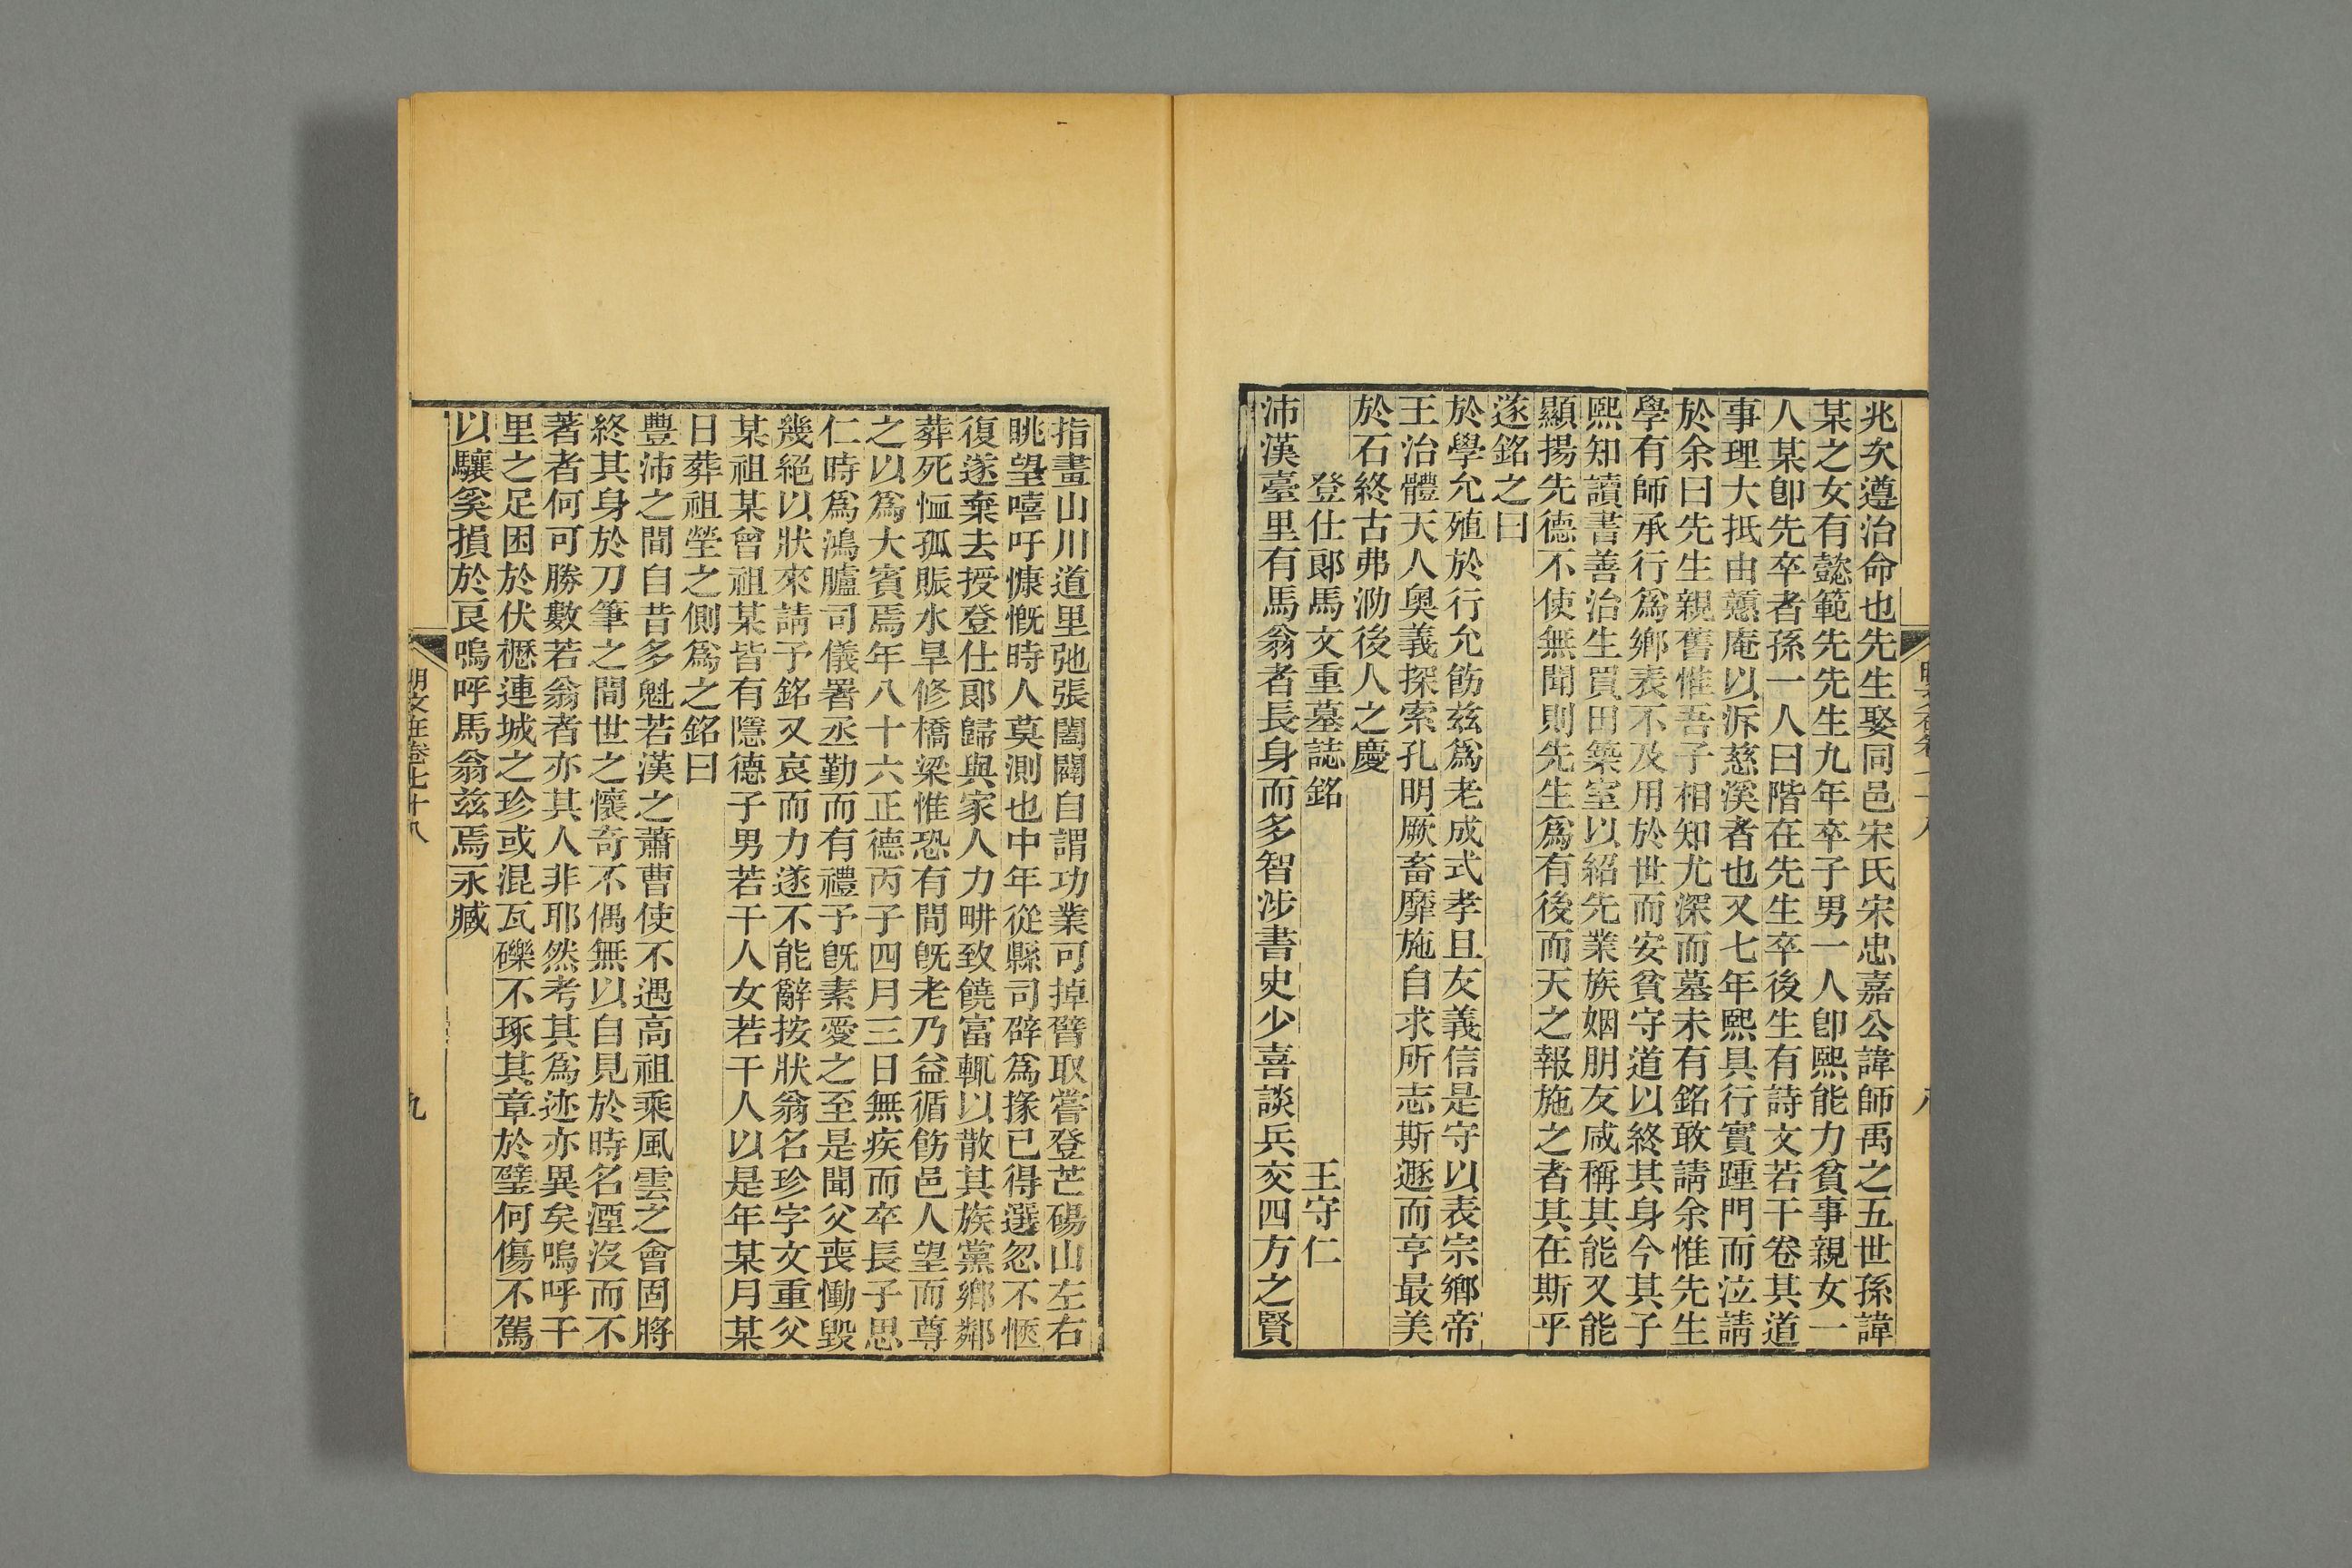 兆矣遵治命也先生娶同邑宋氏宋忠嘉公諱師禹之五世孫諱
某之女有懿範先先生九年卒子男一人卽熙能力貧事親女一
人某卽先卒者孫一人曰階在先生卒後生有詩文若干卷其道
事理大抵由薏庵以泝慈溪者也又七年熙具行實踵門而泣請
於余曰先生親舊惟吾子相知尤深而墓未有銘敢請余惟先生
學有師承行爲鄉表不及用於世而安貧守道以終其身今其子
熙知讀書善治生買田築室以紹先業族姻朋友咸稱其能又能
顯揚先德不使無聞則先生爲有後而天之報施之者其在斯乎
遂銘之曰
於學允殖於行允飭兹爲老成式孝且友義信是守以表宗鄉帝
王治體天人奧義探索孔明厥畜靡施自求所志斯遯而亨最美
於石終古弗泐後人之慶
登仕郞馬文重墓誌銘 王守仁
沛漢臺里有馬翁者長身而多智涉書史少喜談兵交四方之賢
指畫山川道里弛張闔闢自謂功業可掉臂取嘗登芒碭山左右
眺望嘻吁慷慨時人莫測也中年從縣司辟爲掾已得選忽不愜
復遂棄去授登仕郞歸與家人力畊致饒富輒以散其族黨鄉鄰
葬死恤孤賑水旱修橋梁惟恐有間旣老乃益循飭邑人望而尊
之以爲大賓焉年八十六正德丙子四月三日無疾而卒長子思
仁時爲鴻臚司儀署丞勤而有禮予旣素愛之至是聞父喪慟毁
幾絕以狀來請予銘又哀而力遂不能辭按狀翁名珍字文重父
某祖某曾祖某皆有隱德子男若干人女若干人以是年某月某
日葬祖塋之側爲之銘曰
豐沛之間自昔多魁若漢之蕭曹使不遇高祖乘風雲之會固將
終其身於刀筆之間世之懷奇不偶無以自見於時名湮沒而不
著者何可勝數若翁者亦其人非耶然考其爲迹亦異矣嗚呼千
里之足困於伏櫪連城之珍或混瓦礫不琢其章於璧何傷不駕
以驤奚損於良嗚呼馬翁兹焉永臧
明文在卷七十八
九